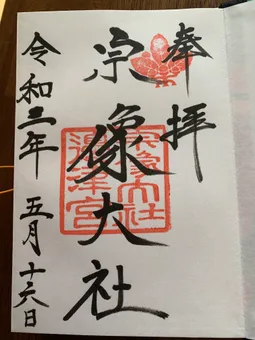 奉拝
宗像大社
宗像大社
邊津宮
令和三年 五月十六日